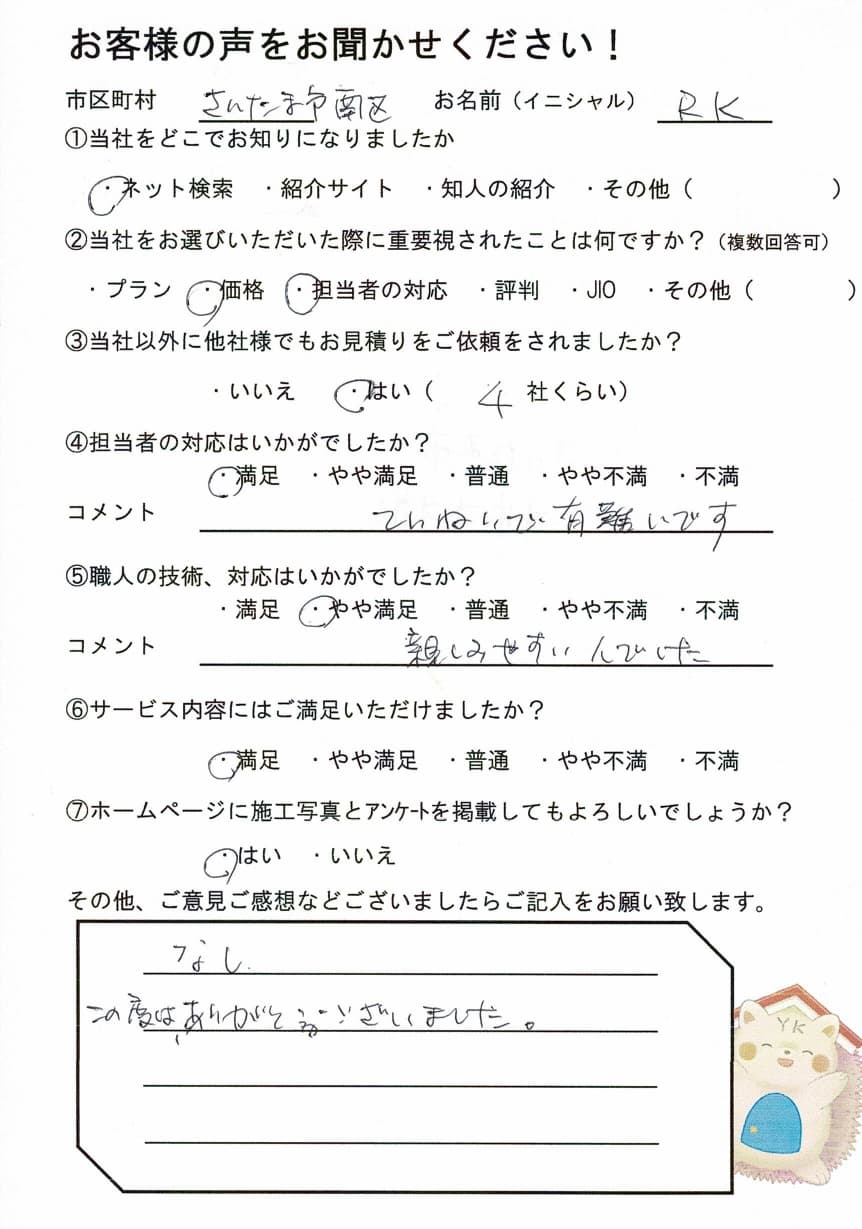 お客様の声をお聞かせください！
市区町村 さいたま市南区 お名前（イニシャル） RK
①当社をどこでお知りになりましたか
・ネット検索 ・紹介サイト ・知人の紹介 ・その他（ ）
②当社をお選びいただいた際に重要視されたことは何ですか？（複数回答可）
・プラン ・価格 ・担当者の対応 ・評判 ・JIO ・その他（ ）
③当社以外に他社様でもお見積りをご依頼をされましたか？
・いいえ ・はい（ 4 社くらい）
④担当者の対応はいかがでしたか？
・満足 ・やや満足 ・普通 ・やや不満 ・不満
コメント ていねいで有難いです
⑤職人の技術、対応はいかがでしたか？
・満足 ・やや満足 ・普通 ・やや不満 ・不満
コメント 親しみやすいんでした
⑥サービス内容にはご満足いただけましたか？
・満足 ・やや満足 ・普通 ・やや不満 ・不満
⑦ホームページに施工写真とｱﾝｹｰﾄを掲載してもよろしいでしょうか？
・はい ・いいえ
その他、ご意見ご感想などございましたらご記入をお願い致します。
なし
この度はありがとうございました。
YK